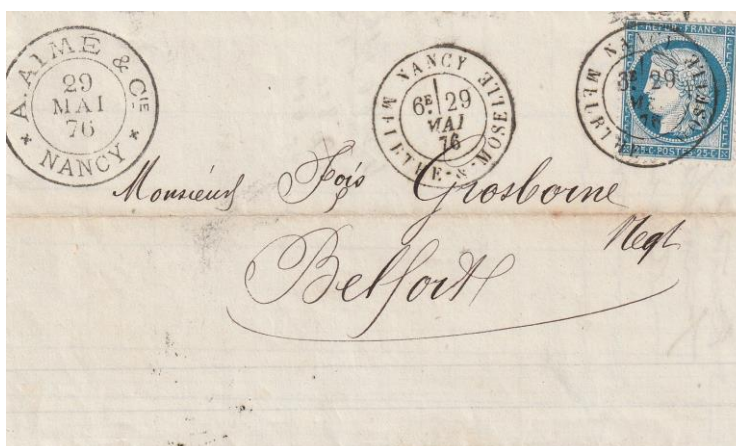 A. AIMÉ & CIE
29
MAI
76
NANCY
NANCY
6E 29
MAI
76
MEURTHE-&-MOSELLE
NANCY
29
76
REPUB FRANC
POSTES 25 C
Monsieur Fçois Grosborne
Negt
Belfort